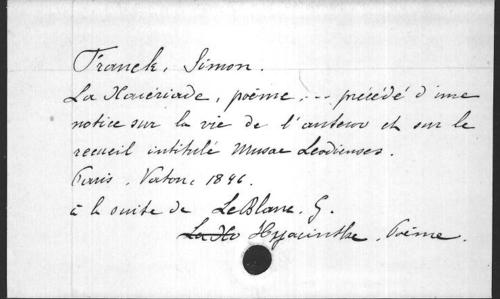 Franck, Simon.
La Xavériade, poëme,... précédé d'une
notice sur la vie de l'auteur et sur le
recueil intitulé Musae Leodienses.
Paris, Vaton, 1896.
à la suite de LeBlanc, G.
La Xa Hyacinthe, Poëme.